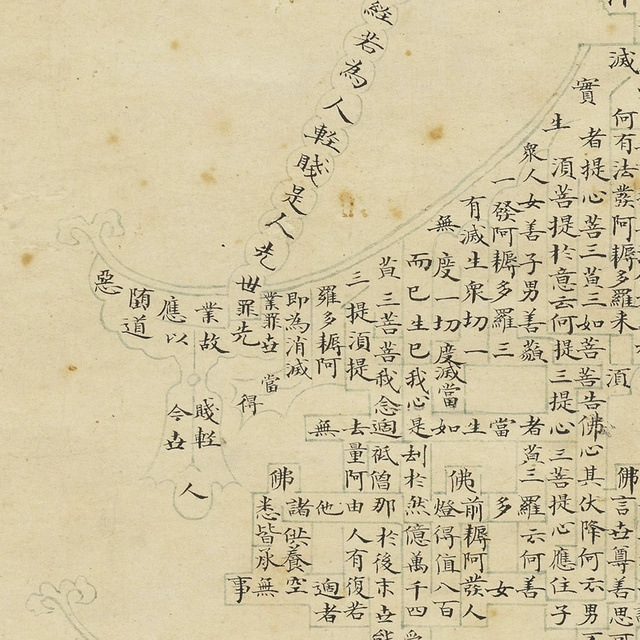 滅何有法發阿耨多羅来須佛言世尊善思
實者提心菩三藐三如菩善告佛心其伏降何云男
生須菩提於意云何提三提心三菩提心應住子
衆人女善子男善藐者藐三羅云何善
一發阿耨多羅三當多女
有滅生衆切一生佛前耨阿發人
無度一切度滅當如燈得值八百
而已生已我心是刦於然億萬千四
藐三菩菩我念過祇僧那於後末世能
三提須提去量阿由人有復若
羅多耨阿無他過者
即為消滅諸供養空
業罪世當佛悉皆承無
經若為人輕賤是人先
世罪先得事
業故賤輕
應以今世
人
随道
惡